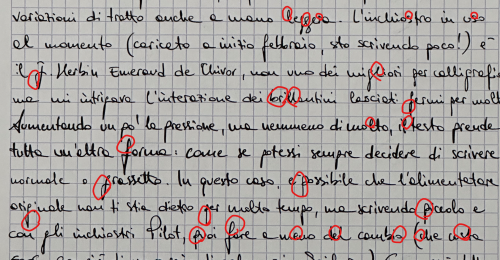 variazioni di tratto anche a mano leggera. L'inchiostro in uso
al momento (caricato a inizio febbraio, sto scrivendo poco!) è
il J. Herbin Emeraud de Chivor, non uno dei migliori per calligrafia
ma mi intrigava l'interazione dei brillantini lasciati fermi per molto
Aumentando un po' la pressione, ma nemmeno di molto, il testo prende
tutta un'altra forma: come se potessi sempre decidere di scrivere
normale o grassetto. In questo caso, è possibile che l'alimentatore
originale non ti stia dietro per molto tempo, ma scrivendo piccolo e
con gli inchiostri Pilot, puoi fare a meno del cambio (che costa